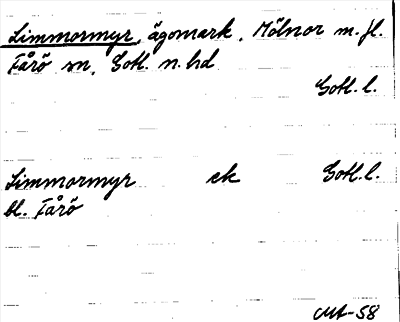 Limmormyr, ägomark, Mölnor m.fl.
Fårö sn, Gotl. n. hd
Gotl. l.
Limmormyr ek Gotl. l.
bl. Fårö
MA-58